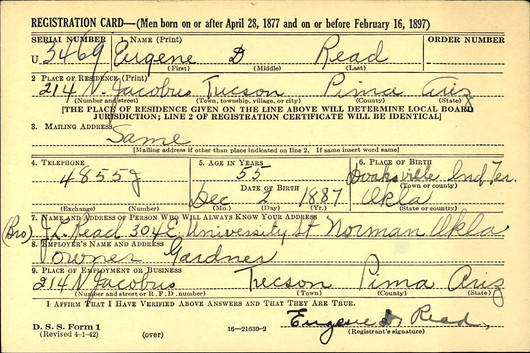 REGISTRATION CARD—(Men born on or after April 28, 1877 and on or before February 16, 1897)
SERIAL NUMBER 1. NAME (Print) ORDER NUMBER
U 3469 Eugene D Read
(First) (Middle) (Last)
2. PLACE OF RESIDENCE (Print)
214 N. Jacobus Tucson Pima Ariz
(Number and street) (Town, township, village, or city) (County) (State)
[THE PLACE OF RESIDENCE GIVEN ON THE LINE ABOVE WILL DETERMINE LOCAL BOARD
JURISDICTION; LINE 2 OF REGISTRATION CERTIFICATE WILL BE IDENTICAL]
3. MAILING ADDRESS
Same
[Mailing address if other than place indicated on line 2. If same insert word same]
4. TELEPHONE 5. AGE IN YEARS 6. PLACE OF BIRTH
4855J 55 Ind. Ter.
(Town or county)
Dec 2 1887 Okla
(Exchange) (Number) (Mo.) (Day) (Yr.) (State or country)
7. NAME AND ADDRESS OF PERSON WHO WILL ALWAYS KNOW YOUR ADDRESS
(Bro) Read 304 E. University St Norman Okla
8. EMPLOYER'S NAME AND ADDRESS
owner Gardner
9. PLACE OF EMPLOYMENT OR BUSINESS
214 N Jacobus Tucson Pima Ariz
(Number and street or R. F. D. number) (Town) (County) (State)
I AFFIRM THAT I HAVE VERIFIED ABOVE ANSWERS AND THAT THEY ARE TRUE.
Eugene D. Read
D. S. S. Form 1
(Revised 4-1-42) (over) 16—21630-2 (Registrant's signature)